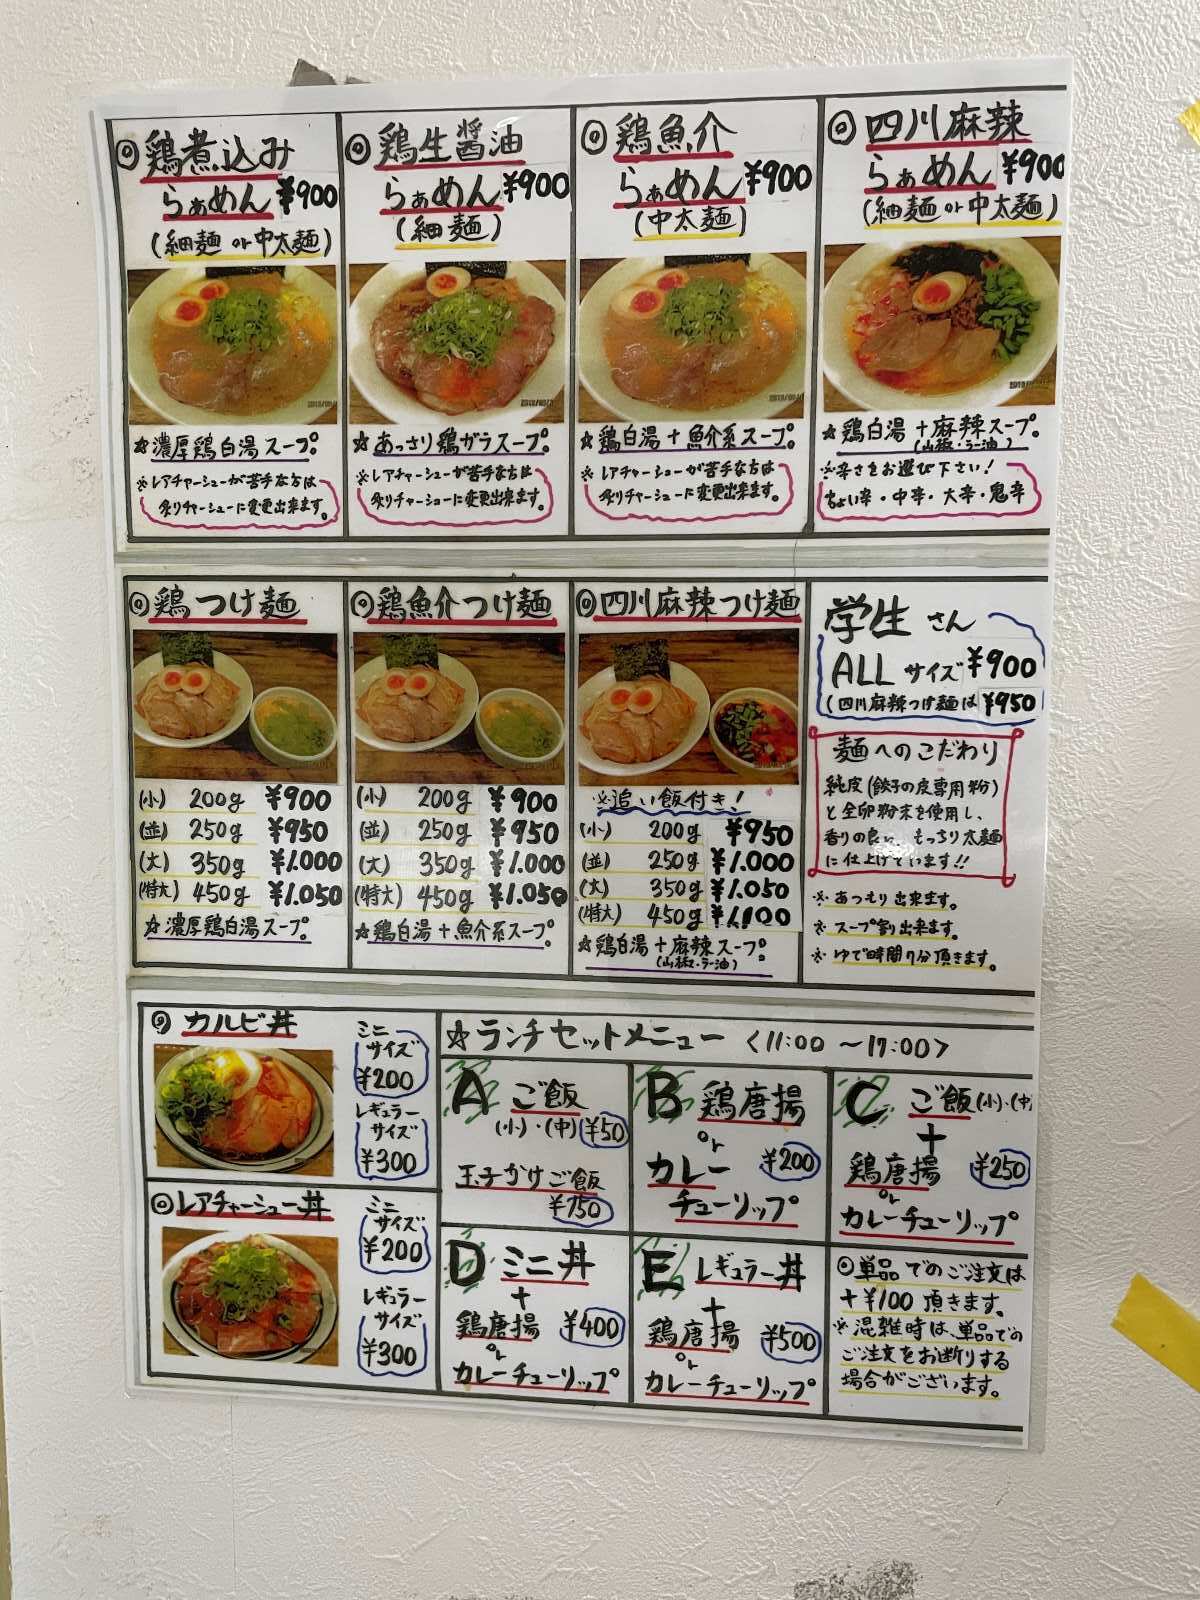 ◎鶏煮込み
らぁめん ¥900
(細麺 or 中太麺)
☆濃厚鶏白湯スープ。
※レアチャーシューが苦手な方は
炙りチャーシューに変更出来ます。
◎鶏生醤油
らぁめん ¥900
(細麺)
☆あっさり鶏ガラスープ。
※レアチャーシューが苦手な方は
炙りチャーシューに変更出来ます。
◎鶏魚介
らぁめん ¥900
(中太麺)
☆鶏白湯+魚介系スープ。
※レアチャーシューが苦手な方は
炙りチャーシューに変更出来ます。
◎四川麻辣
らぁめん ¥900
(細麺 or 中太麺)
☆鶏白湯+麻辣スープ。
(山椒・ラー油)
※辛さをお選び下さい!
ちょい辛・中辛・大辛・鬼辛
◎鶏つけ麺
(小) 200g ¥900
(並) 250g ¥950
(大) 350g ¥1.000
(特大) 450g ¥1.050
☆濃厚鶏白湯スープ。
◎鶏魚介つけ麺
(小) 200g ¥900
(並) 250g ¥950
(大) 350g ¥1.000
(特大) 450g ¥1.050
☆鶏白湯+魚介系スープ。
◎四川麻辣つけ麺
※追い飯付き!
(小) 200g ¥950
(並) 250g ¥1.000
(大) 350g ¥1.050
(特大) 450g ¥1.100
☆鶏白湯+麻辣スープ。
(山椒・ラー油)
学生さん
ALLサイズ ¥900
(四川麻辣つけ麺は ¥950
麺へのこだわり
純皮(餃子の皮専用粉)
と全卵粉末を使用し、
香りの良い もっちり太麺
に仕上げています!!
※あつもり出来ます。
※スープ割り出来ます。
※ゆで時間7分頂きます。
◎カルビ丼
ミニ
サイズ
¥200
レギュラー
サイズ
¥300
◎レアチャーシュー丼
ミニ
サイズ
¥200
レギュラー
サイズ
¥300
☆ランチセットメニュー <11:00 〜17:00>
A ご飯
(小)・(中) ¥50
玉子かけご飯
¥150
B 鶏唐揚
or
カレー ¥200
チューリップ
C ご飯(小)・(中)
+
鶏唐揚 ¥250
or
カレーチューリップ
D ミニ丼
+
鶏唐揚 ¥400
or
カレーチューリップ
E レギュラー丼
+
鶏唐揚 ¥500
or
カレーチューリップ
◎単品でのご注文は
+¥100 頂きます。
※混雑時は、単品での
ご注文をお断りする
場合がございます。